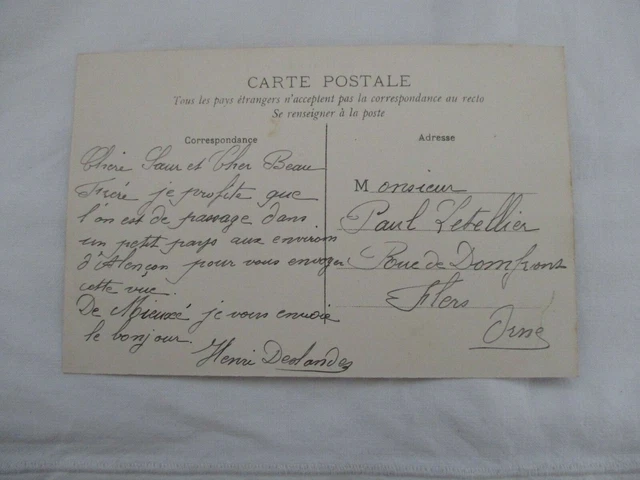 CARTE POSTALE
Tous les pays étrangers n'acceptent pas la correspondance au recto
Se renseigner à la poste
Correspondance
Chère Sœur et Cher Beau
Frère je profite que
l'on est de passage dans
un petit pays aux environs
d'Alençon pour vous envoyer
cette vue.
De Mieuxé je vous envoie
le bonjour.
Henri Deslandes
Adresse
Monsieur
Paul Lebellier
Rue de Domfront
Flers
Orne